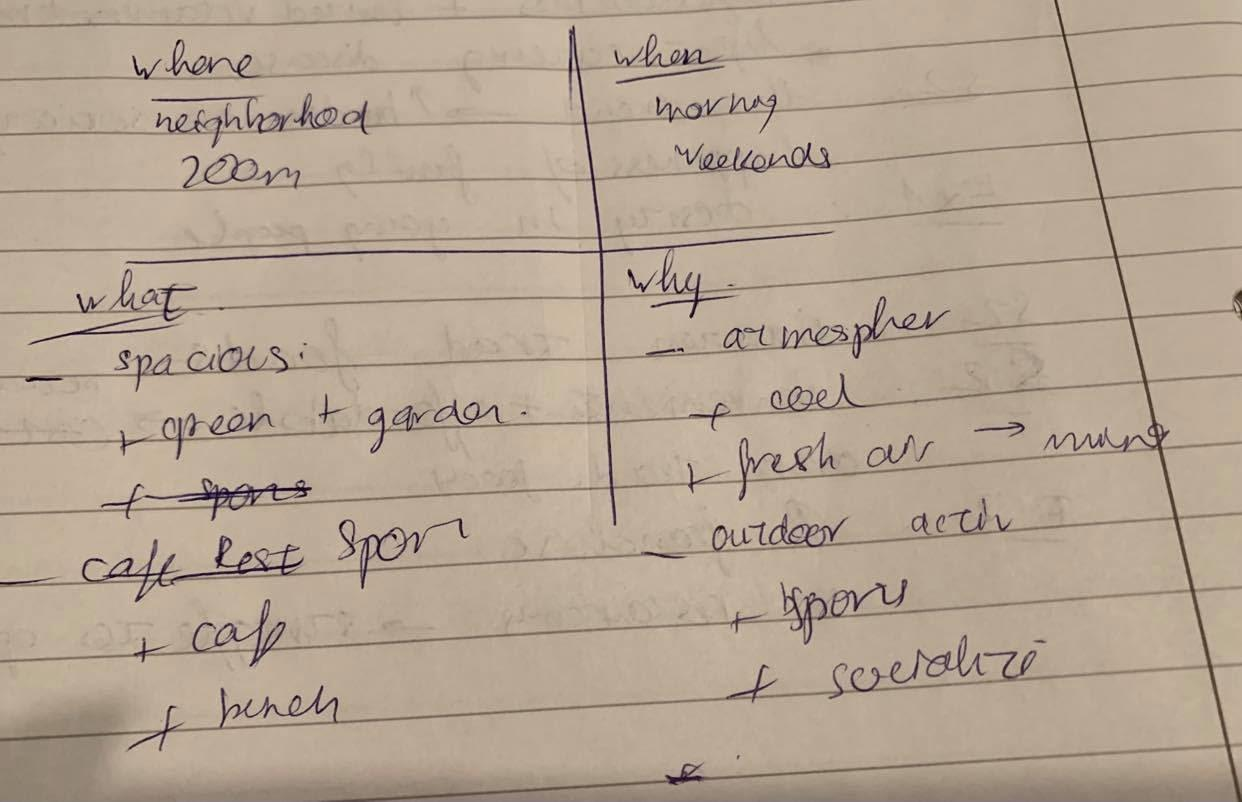 where
neighborhod
200m
when
morning
weekends
what
- spacious:
+ green + garden.
+ spors
- cafe Rest Sport
+ cafe
+ bench
why.
- atmespher
+ cool
+ fresh air →
- outdoor activ
+ sports
+ socialize